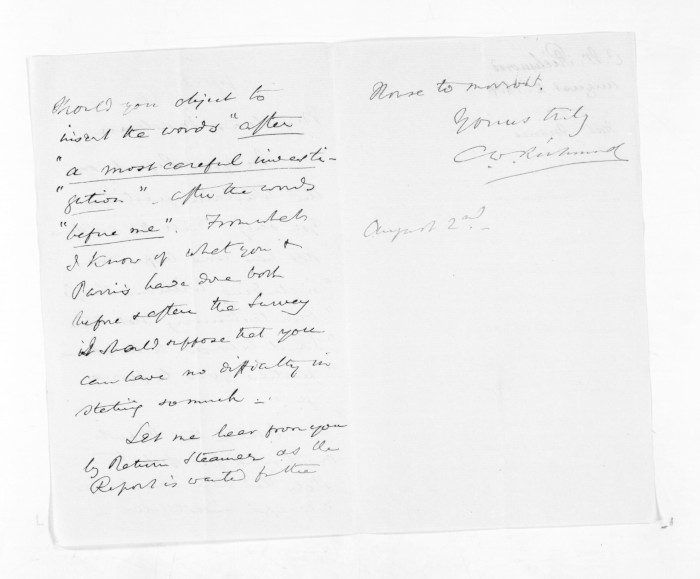 Should you object to
insert the words "after
"a most careful investi-
"gation" - after the words
"before me". From what
I know of what you &
Parris have done both
before & after the Survey
I should suppose that you
can have no difficulty in
stating so much -.
Let me hear from you
by Return Steamer as the
Report is wanted for the
House to morrow.
Yours truly
CW. Richmond
August 2nd.